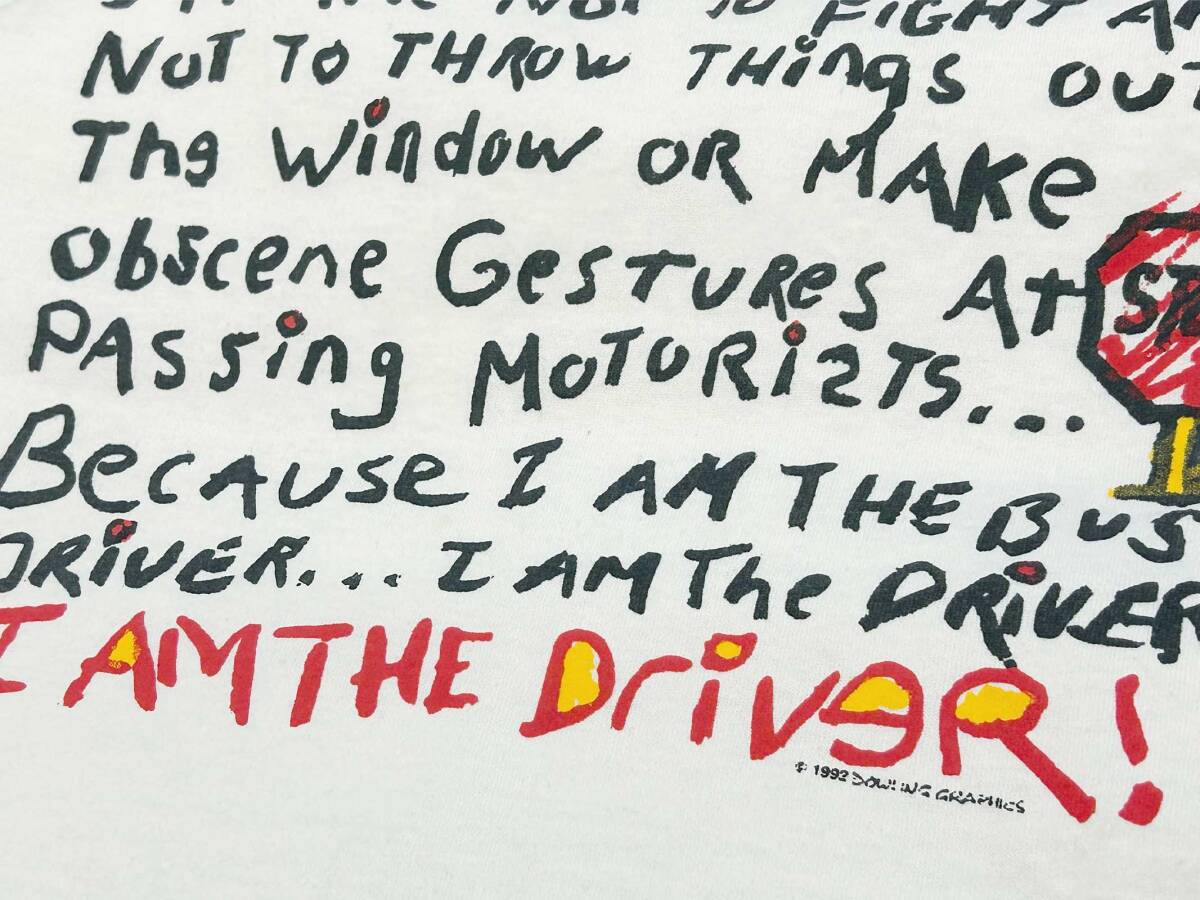 FIGHT
NOT TO THROW THiNgS OUT
Thg WiNdow OR MAKe
Obscene GesTuRes At
PAssing MoToRisTs...
Because I AM THE Bus
DRiVER... I AM The DRiVER
I AM THE DriveR!
© 1992 DOWLING GRAPHICS